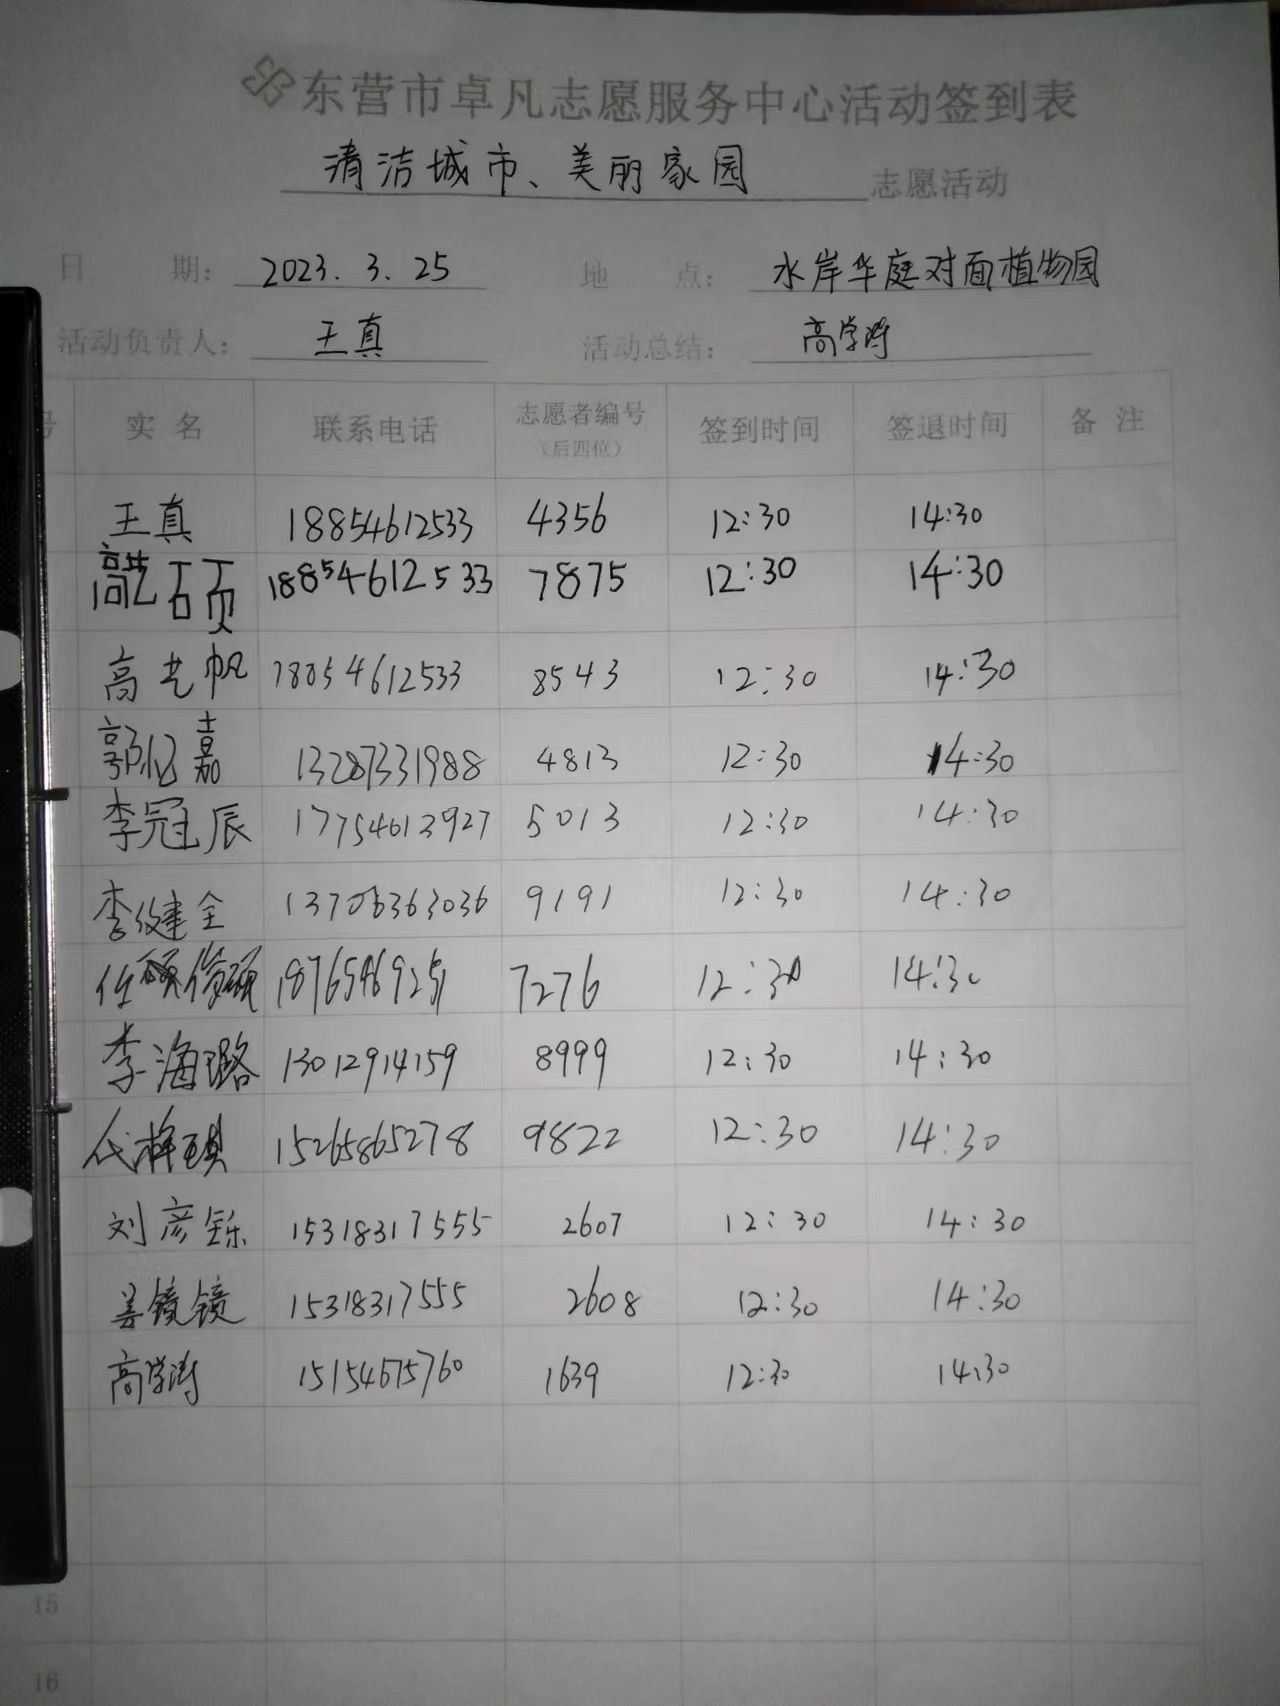 东营市卓凡志愿服务中心活动签到表
清洁城市、美丽家园 志愿活动
日 期: 2023.3.25 地 点: 水岸华庭对面植物园
活动负责人: 王真 活动总结: 高学涛
号 实名 联系电话 志愿者编号 签到时间 签退时间 备注
(后四位)
王真 18854612533 4356 12:30 14:30
高艺硕 18854612533 7875 12:30 14:30
高艺帆 18854612533 8543 12:30 14:30
郭亿嘉 13287331988 4813 12:30 14:30
李冠辰 17754613927 5013 12:30 14:30
李健全 13706363036 9191 12:30 14:30
任 7276 12:30 14:30
李海璐 13012914159 8999 12:30 14:30
代梓琪 15265865278 9822 12:30 14:30
刘彦铄 15318317555 2607 12:30 14:30
姜镜镜 15318317555 2608 12:30 14:30
高学涛 15154615760 1639 12:30 14:30
15
16